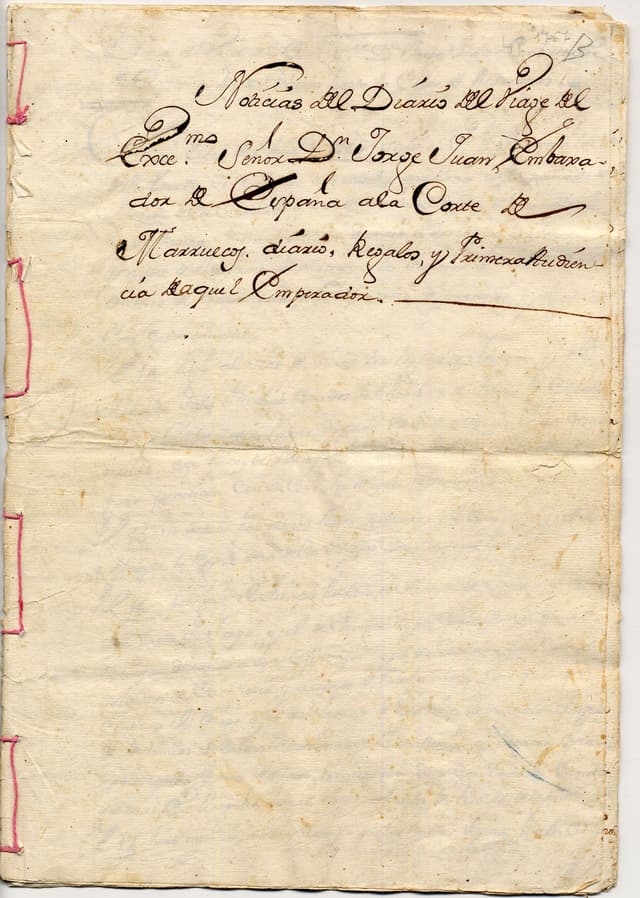 Noticias del Diario del Viage del
Exce.mo Señor Dn Jorge Juan Embaxa-
dor de España a la Corte de
Marruecos. diario, Regalos, y Primera Audien-
cia de aquel Emperador.
1767 B